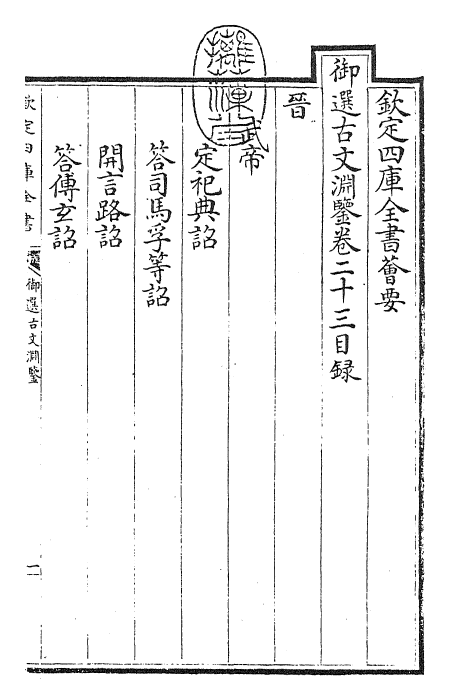 欽定四庫全書薈要
御選古文淵鑒卷二十三目録
晉
武帝
定祀典詔
答司馬孚等詔
開言路詔
答傅玄詔
欽定四庫全書
御選古文淵鑒
一